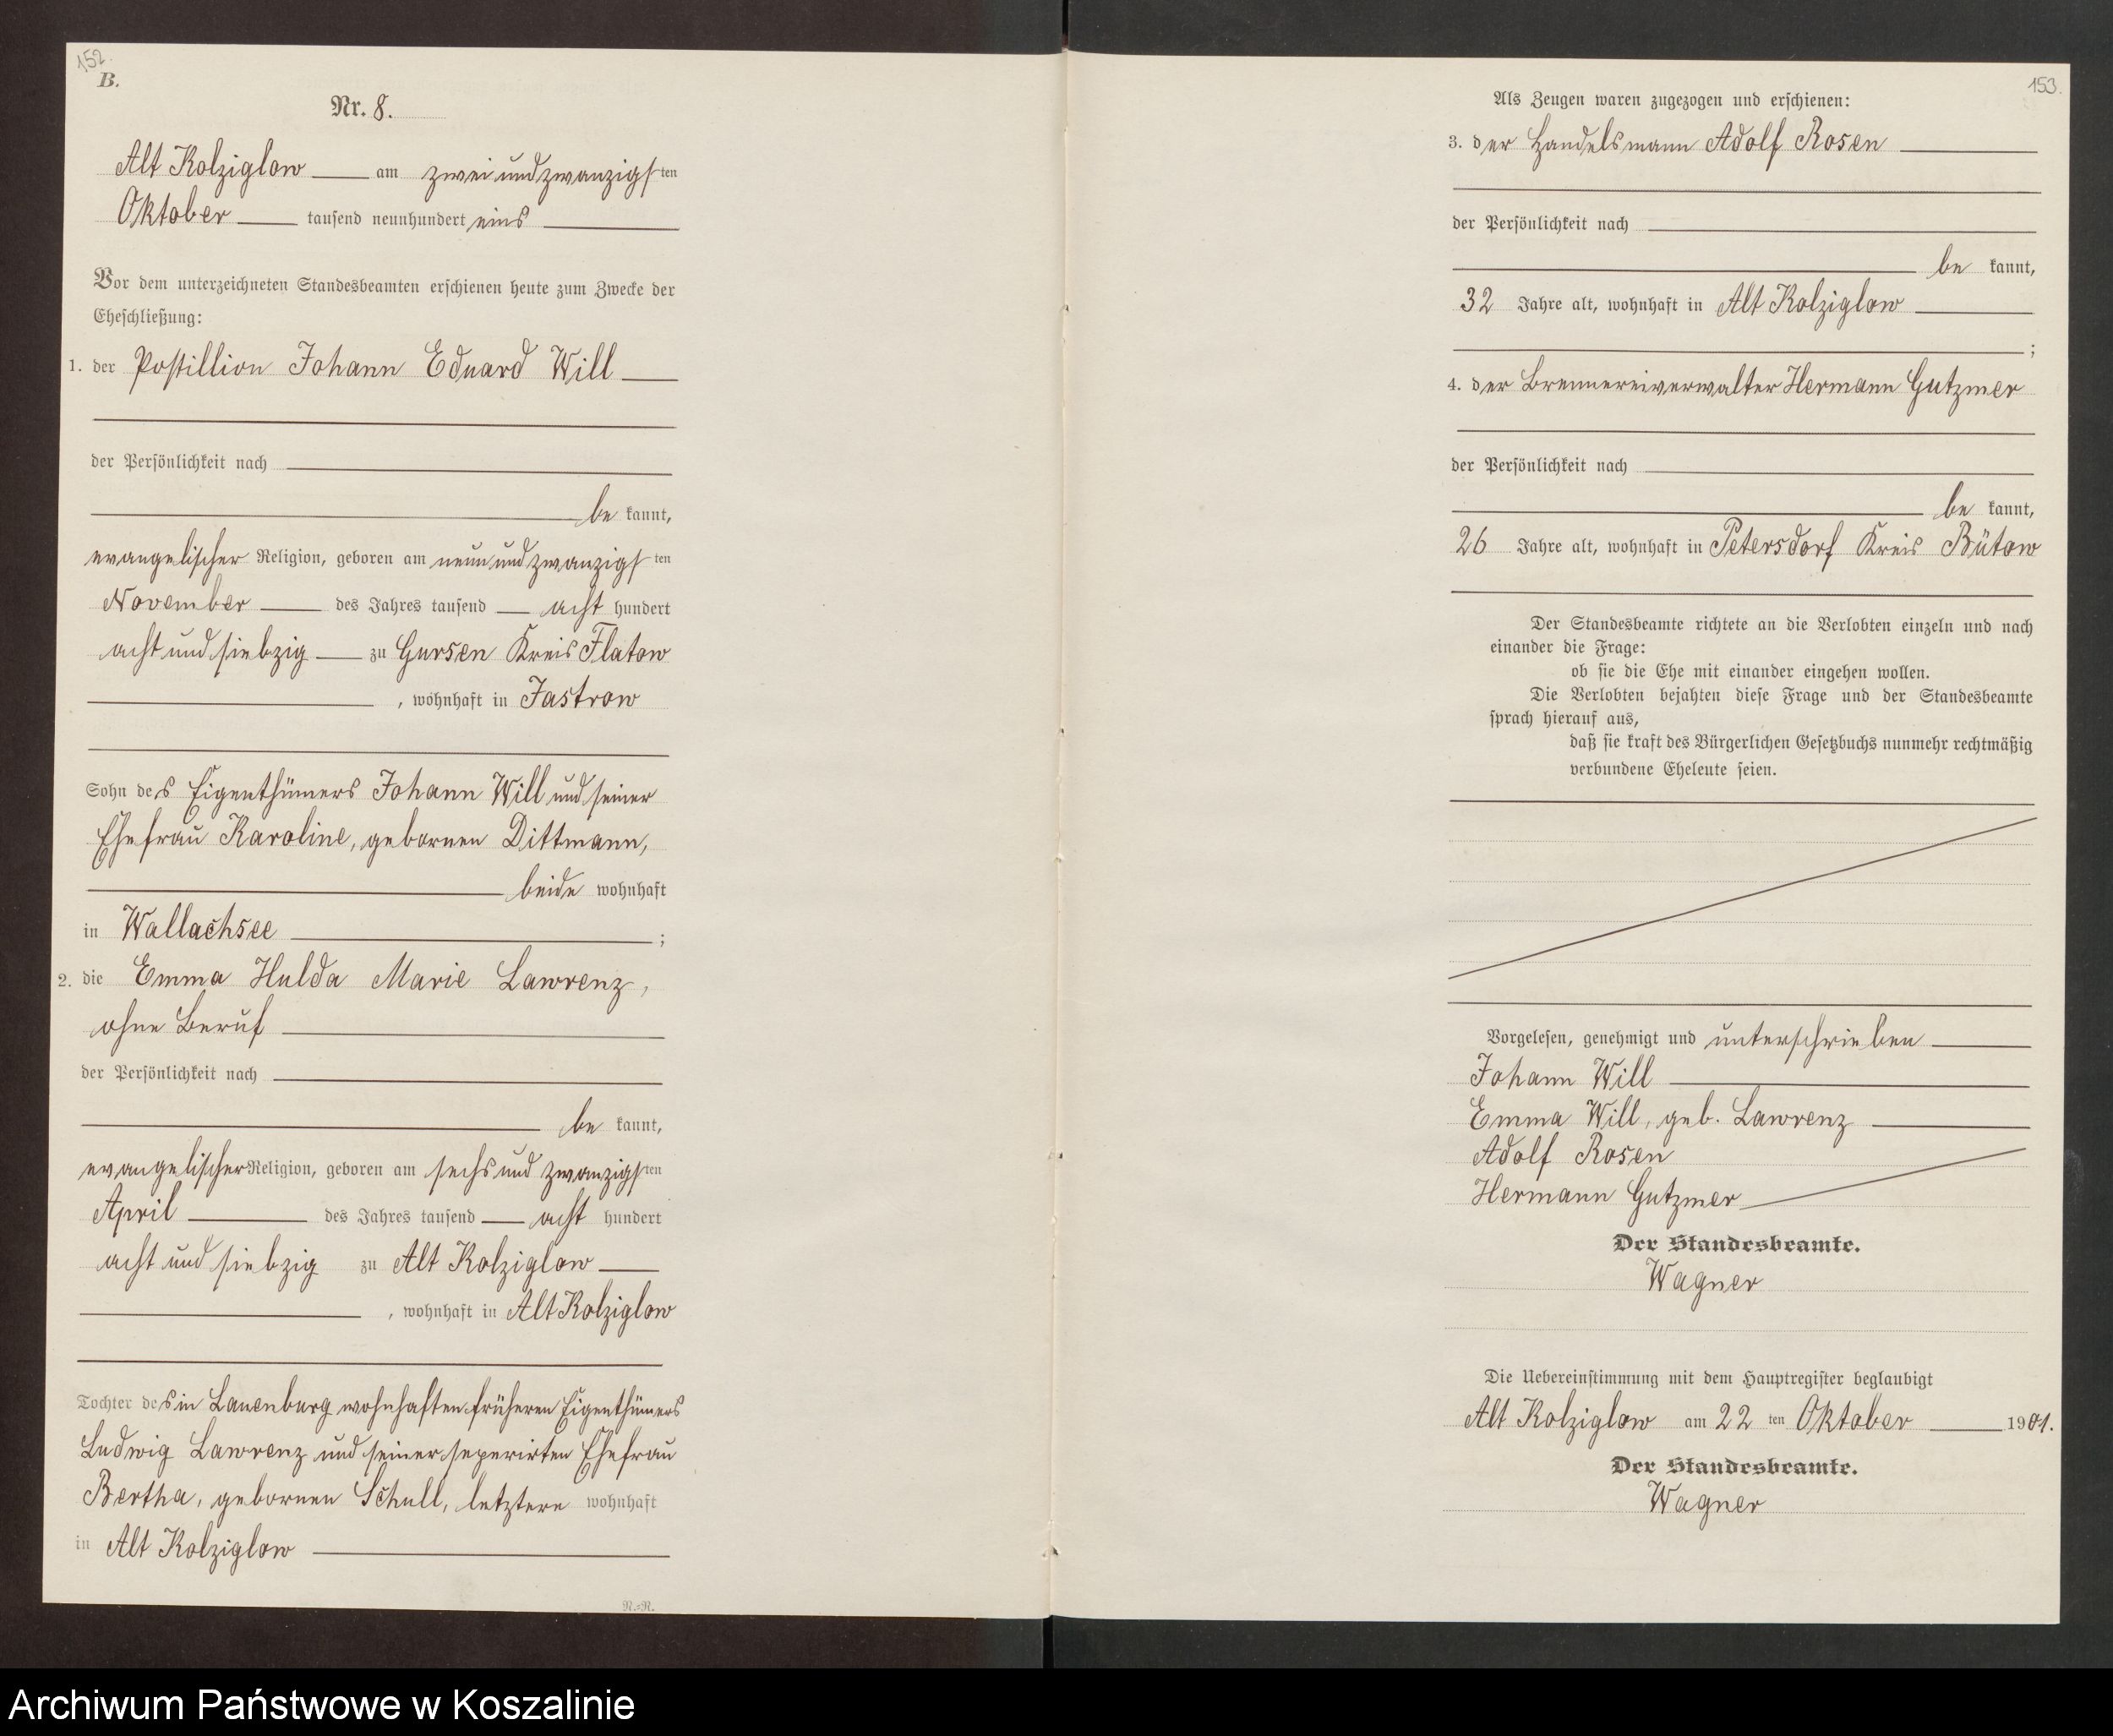 152.
B.
Nr. 8.
Alt Kolziglow am zwei und zwanzigsten
Oktober tausend neunhundert eins
Vor dem unterzeichneten Standesbeamten erschienen heute zum Zwecke der
Eheschließung:
1. der Postillion Johann Eduard Will
der Persönlichkeit nach
be kannt,
evangelischer Religion, geboren am neun und zwanzigsten
November des Jahres tausend acht hundert
acht und siebzig zu Gursen Kreis Flatow
, wohnhaft in Jastrow
Sohn des Eigenthümers Johann Will und seiner
Ehefrau Karoline, gebornen Dittmann,
beide wohnhaft
in Wallachsee ;
2. die Emma Hulda Marie Lawrenz,
ohne Beruf
der Persönlichkeit nach
be kannt,
evangelischer Religion, geboren am sechs und zwanzigsten
April des Jahres tausend acht hundert
acht und siebzig zu Alt Kolziglow
, wohnhaft in Alt Kolziglow
Tochter des in Lauenburg wohnhaften früheren Eigenthümers
Ludwig Lawrenz und seiner seperirten Ehefrau
Bertha, gebornen Schull, letztere wohnhaft
in Alt Kolziglow
N.=R.
153.
Als Zeugen waren zugezogen und erschienen:
3. der Handelsmann Adolf Rosen
der Persönlichkeit nach
be kannt,
32 Jahre alt, wohnhaft in Alt Kolziglow
;
4. der Brennereiverwalter Hermann Gutzmer
der Persönlichkeit nach
be kannt,
26 Jahre alt, wohnhaft in Petersdorf Kreis Bütow
Der Standesbeamte richtete an die Verlobten einzeln und nach
einander die Frage:
ob sie die Ehe mit einander eingehen wollen.
Die Verlobten bejahten diese Frage und der Standesbeamte
sprach hierauf aus,
daß sie kraft des Bürgerlichen Gesetzbuchs nunmehr rechtmäßig
verbundene Eheleute seien.
Vorgelesen, genehmigt und unterschrieben
Johann Will
Emma Will, geb. Lawrenz
Adolf Rosen
Hermann Gutzmer
Der Standesbeamte.
Wagner
Die Uebereinstimmung mit dem Hauptregister beglaubigt
Alt Kolziglow am 22 ten Oktober 1901.
Der Standesbeamte.
Wagner
Archiwum Państwowe w Koszalinie